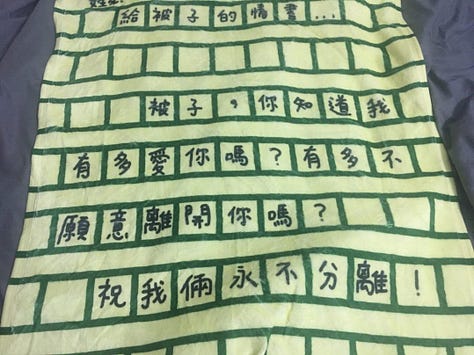 姓名:
給被子的情書...
被子，你知道我
有多愛你嗎？有多不
願意離開你嗎？
祝我倆永不分離！